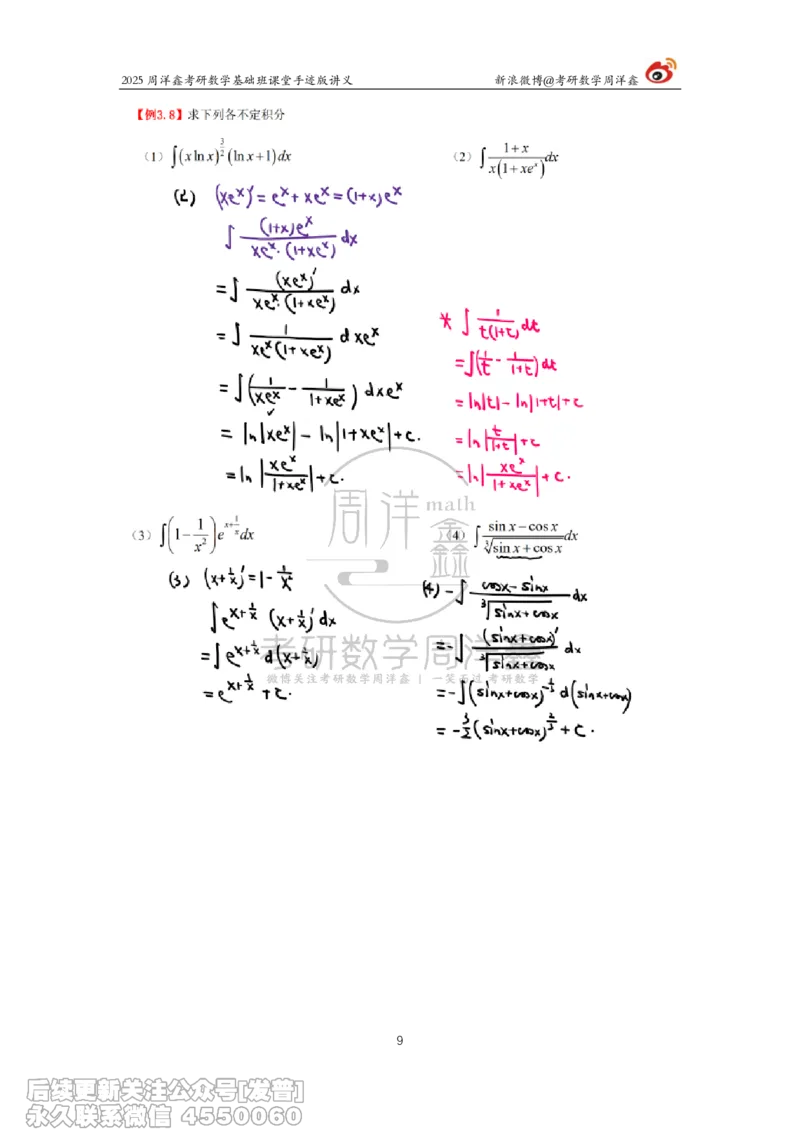 2025 周洋鑫考研数学基础班课堂手迹版讲义 新浪微博@考研数学周洋鑫
【例3.8】求下列各不定积分
（1）∫(x ln x)^{3/2}(ln x+1)dx （2）∫ (1+x)/(x(1+xe^x)) dx
(2) (xe^x)' = e^x + xe^x = (1+x)e^x
∫ (1+x)e^x/(xe^x·(1+xe^x)) dx
= ∫ (xe^x)'/(xe^x·(1+xe^x)) dx
= ∫ 1/(xe^x(1+xe^x)) dxe^x
= ∫(1/(xe^x) - 1/(1+xe^x)) dxe^x
= ln|xe^x| - ln|1+xe^x| + c.
= ln|xe^x/(1+xe^x)| + c.
* ∫ 1/(t(1+t)) dt
= ∫(1/t - 1/(1+t)) dt
= ln|t| - ln|1+t| + c
= ln|t/(1+t)| + c
= ln|xe^x/(1+xe^x)| + c.
（3）∫(1-1/x²)e^{x+1/x}dx （4）∫ (sin x-cos x)/∛(sin x+cos x) dx
(3) (x+1/x)' = 1-1/x²
∫e^{x+1/x} (x+1/x)' dx
= ∫e^{x+1/x} d(x+1/x)
= e^{x+1/x} + c.
(4) -∫ (cosx-sinx)/∛(sinx+cosx) dx
= -∫ (sinx+cosx)'/∛(sinx+cosx) dx
= -∫(sinx+cosx)^{-1/3} d(sinx+cosx)
= -3/2(sinx+cosx)^{2/3} + c.
周洋鑫 math
考研数学周洋鑫
微博关注考研数学周洋鑫 | 一笑而过 考研数学
9
后续更新关注公众号[发普]
永久联系微信 4550060